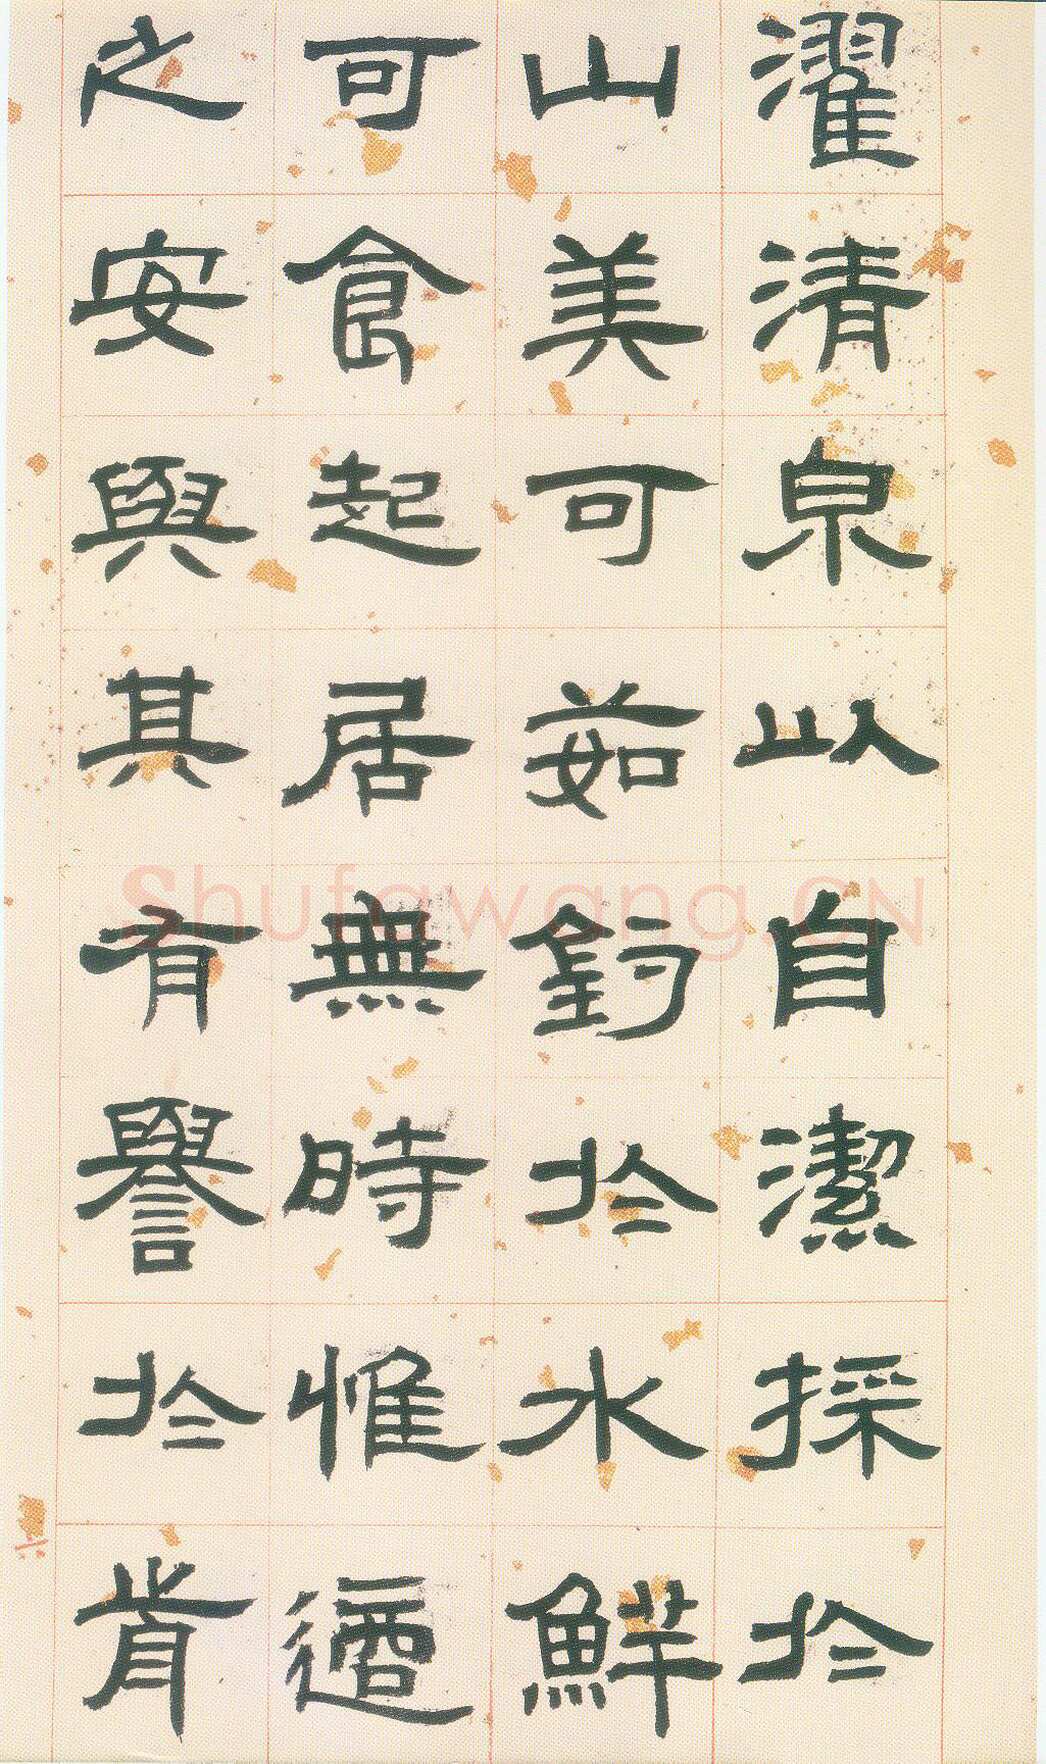 濯清泉以自潔採於
山美可茹釣於水鮮
可食起居無時惟適
之安與其有譽於前
Shufawang.CN